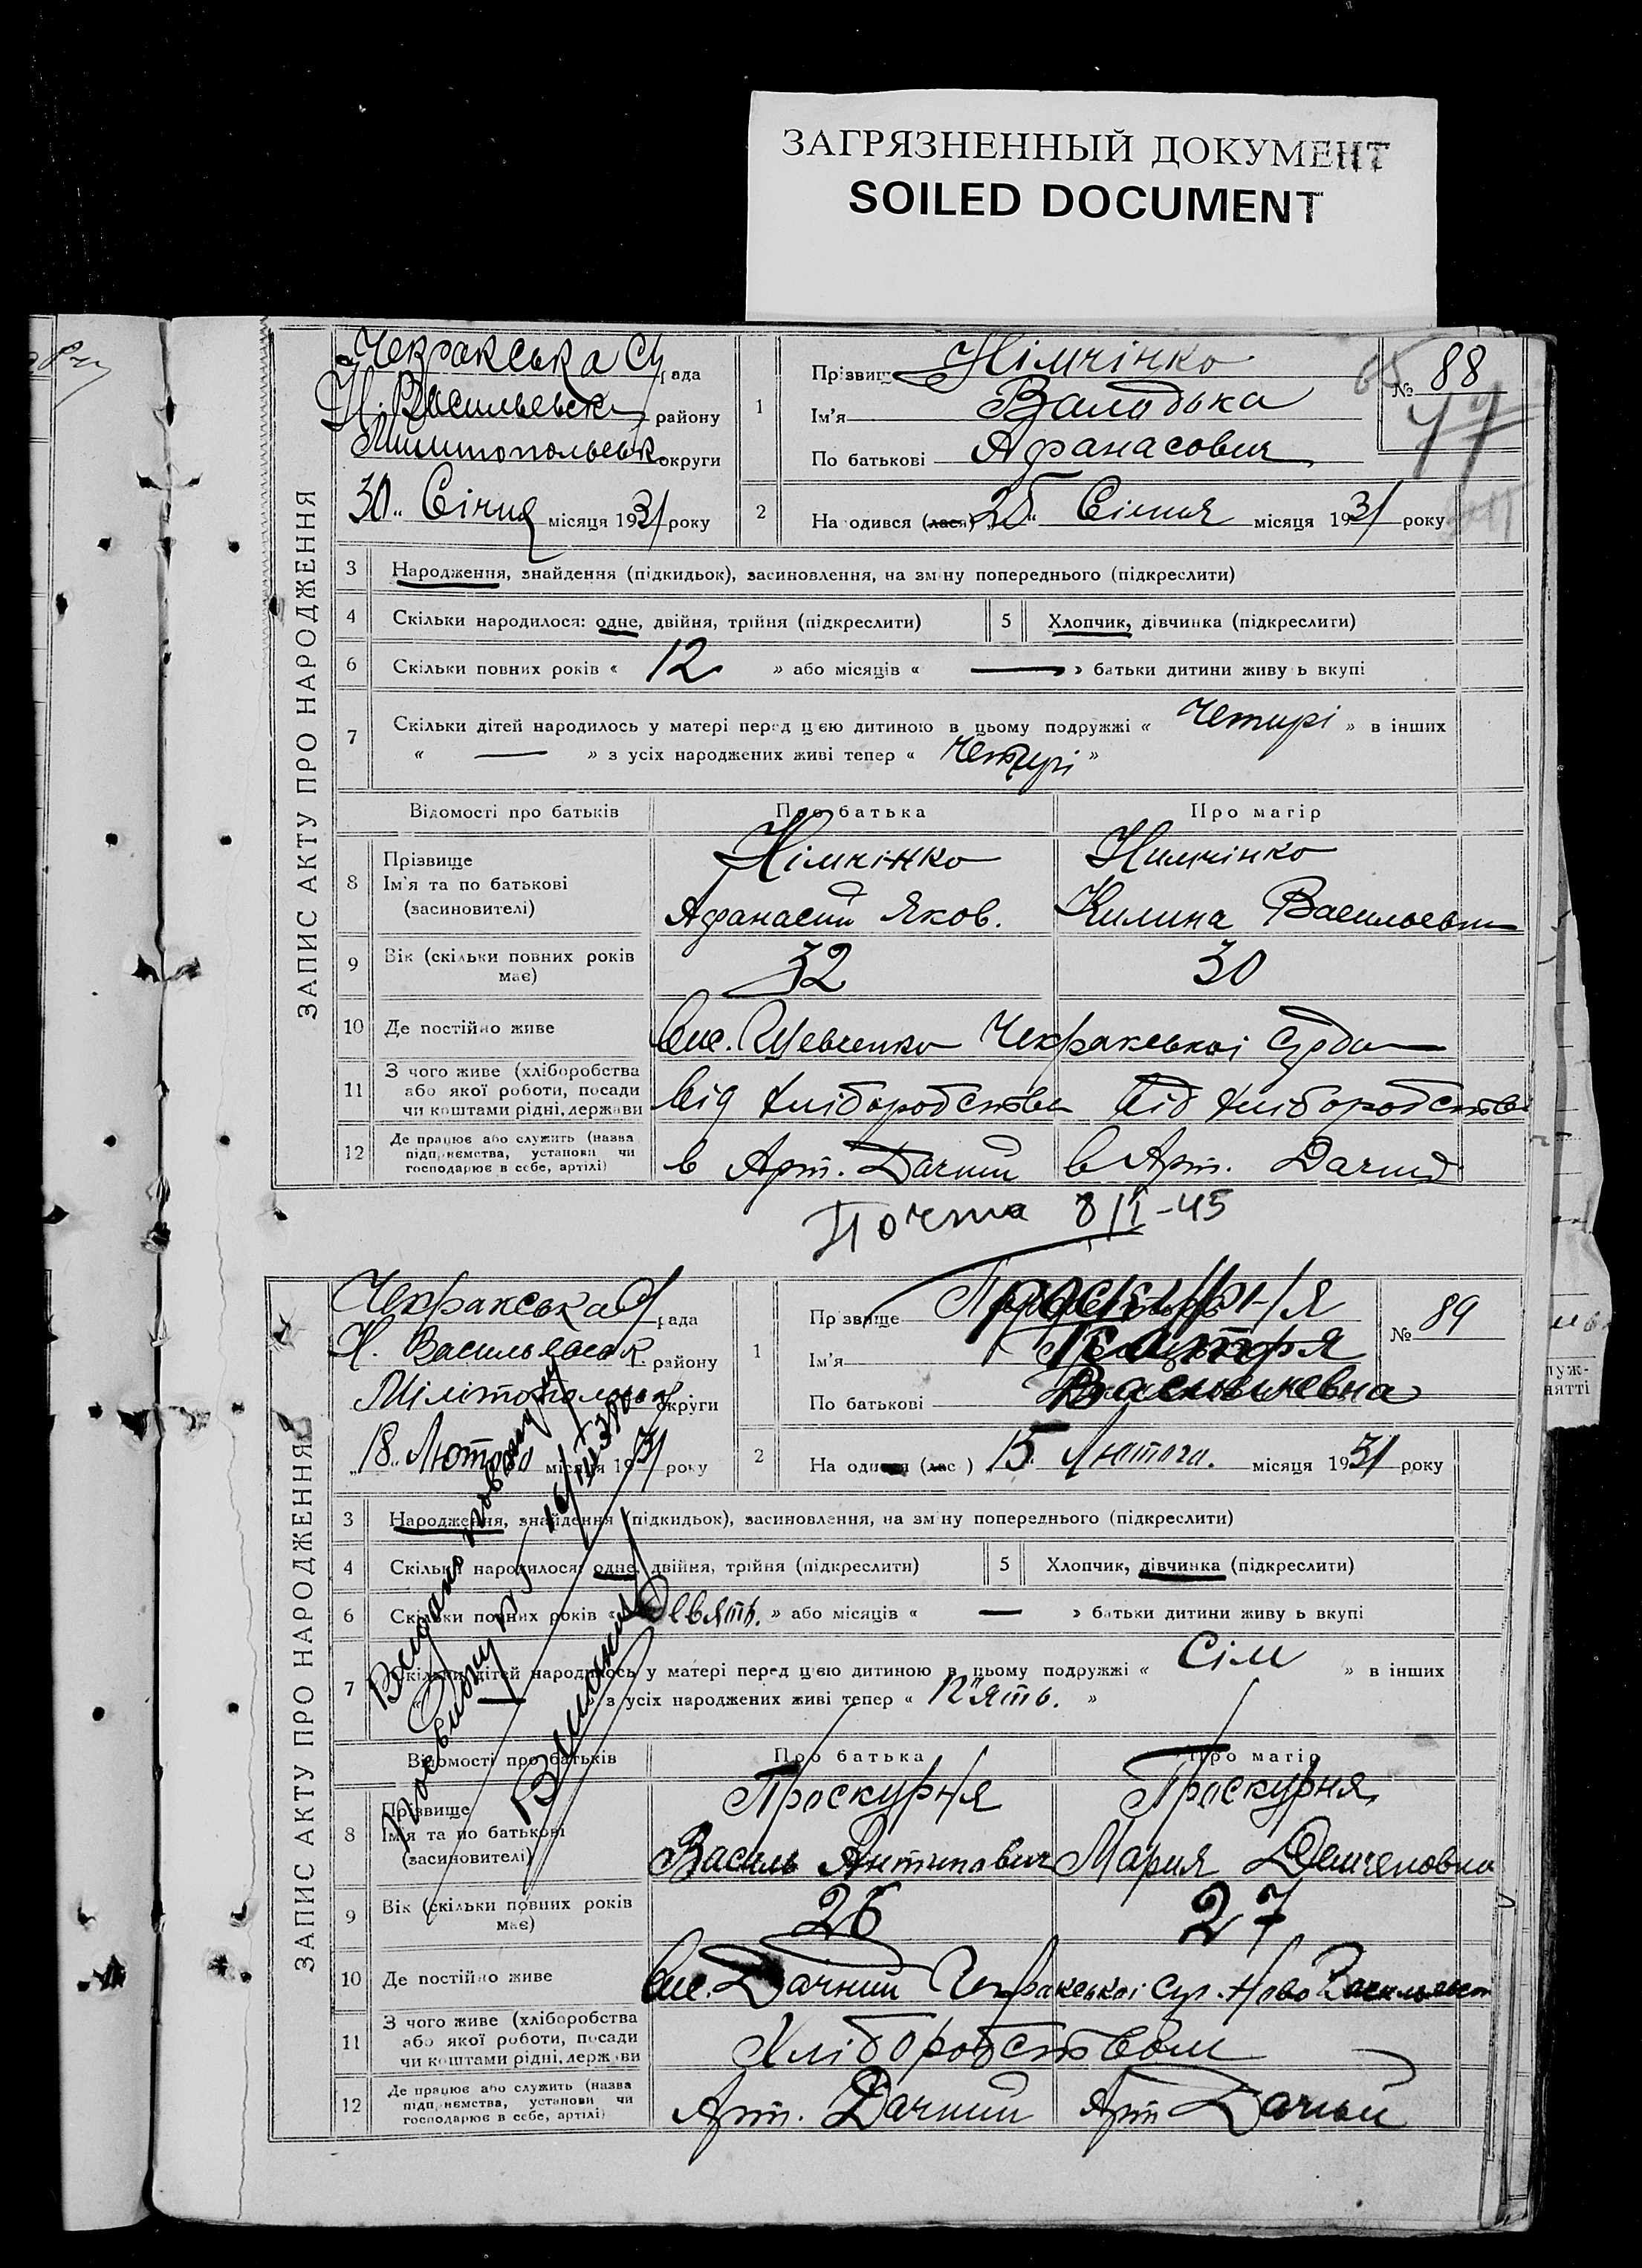 ЗАГРЯЗНЕННЫЙ ДОКУМЕНТ
SOILED DOCUMENT
ЗАПИС АКТУ ПРО НАРОДЖЕННЯ
Чекракська С/рада
Н. Васильевськ району
округи
30 Січня місяця 1931 року
1
Прізвище Німчінко
Ім'я Валодька
По батькові Афанасович
№ 88
2
На одився (лася) 25 Січня місяця 1931 року
3 Народження, знайдення (підкидьок), засиновлення, на зміну попереднього (підкреслити)
4 Скільки народилося: одне, двійня, трійня (підкреслити) 5 Хлопчик, дівчинка (підкреслити)
6 Скільки повних років « 12 » або місяців « — » батьки дитини живу ь вкупі
7 Скільки дітей народилось у матері перед цією дитиною в цьому подружжі « Четирі » в інших
« — » з усіх народжених живі тепер « Четирі »
Відомості про батьків Про батька Про матір
8 Прізвище Німчінко Нимчінко
Ім'я та по батькові
(засиновителі) Афанасий Яков. Килина Васильевн
9 Вік (скільки повних років має) 32 30
10 Де постійно живе Вис. Шевченко Чекракської С/ради
11 З чого живе (хліборобства
або якої роботи, посади
чи коштами рідні, держави Від хліборобства Від хліборобства
12 Де працює або служить (назва
підприємства, установи чи
господарює в себе, артілі) в Арт. Дачний в Арт. Дачний
Почта 8/I-45
ЗАПИС АКТУ ПРО НАРОДЖЕННЯ
Чекракська С/рада
Н. Васильевськ району
Мілітопольськ округи
18 Лютого місяця 1931 року
1
Пр звище Проскурня
Ім'я
По батькові Васильевна
№ 89
2
На одився (лас ) 15 Лютого. місяця 1931 року
3 Народження, знайдення (підкидьок), засиновлення, на зміну попереднього (підкреслити)
4 Скільки народилося: одне, двійня, трійня (підкреслити) 5 Хлопчик, дівчинка (підкреслити)
6 Скільки повних років « Девять. » або місяців « — » батьки дитини живу ь вкупі
7 Скільки дітей народилось у матері перед цією дитиною в цьому подружжі « Сім » в інших
« — » з усіх народжених живі тепер « П'ять. »
Відомості про батьків Про батька Про матір
8 Прізвище Проскурня Проскурня
Ім'я та по батькові
(засиновителі) Василь Антипович Мария
9 Вік (скільки повних років має) 26 27
10 Де постійно живе Вис. Дачний Чекракської С/р. Ново Васильевск
11 З чого живе (хліборобства
або якої роботи, посади
чи коштами рідні, держави Хліборобством
12 Де працює або служить (назва
підприємства, установи чи
господарює в себе, артілі) Арт. Дачний Арт Дачный